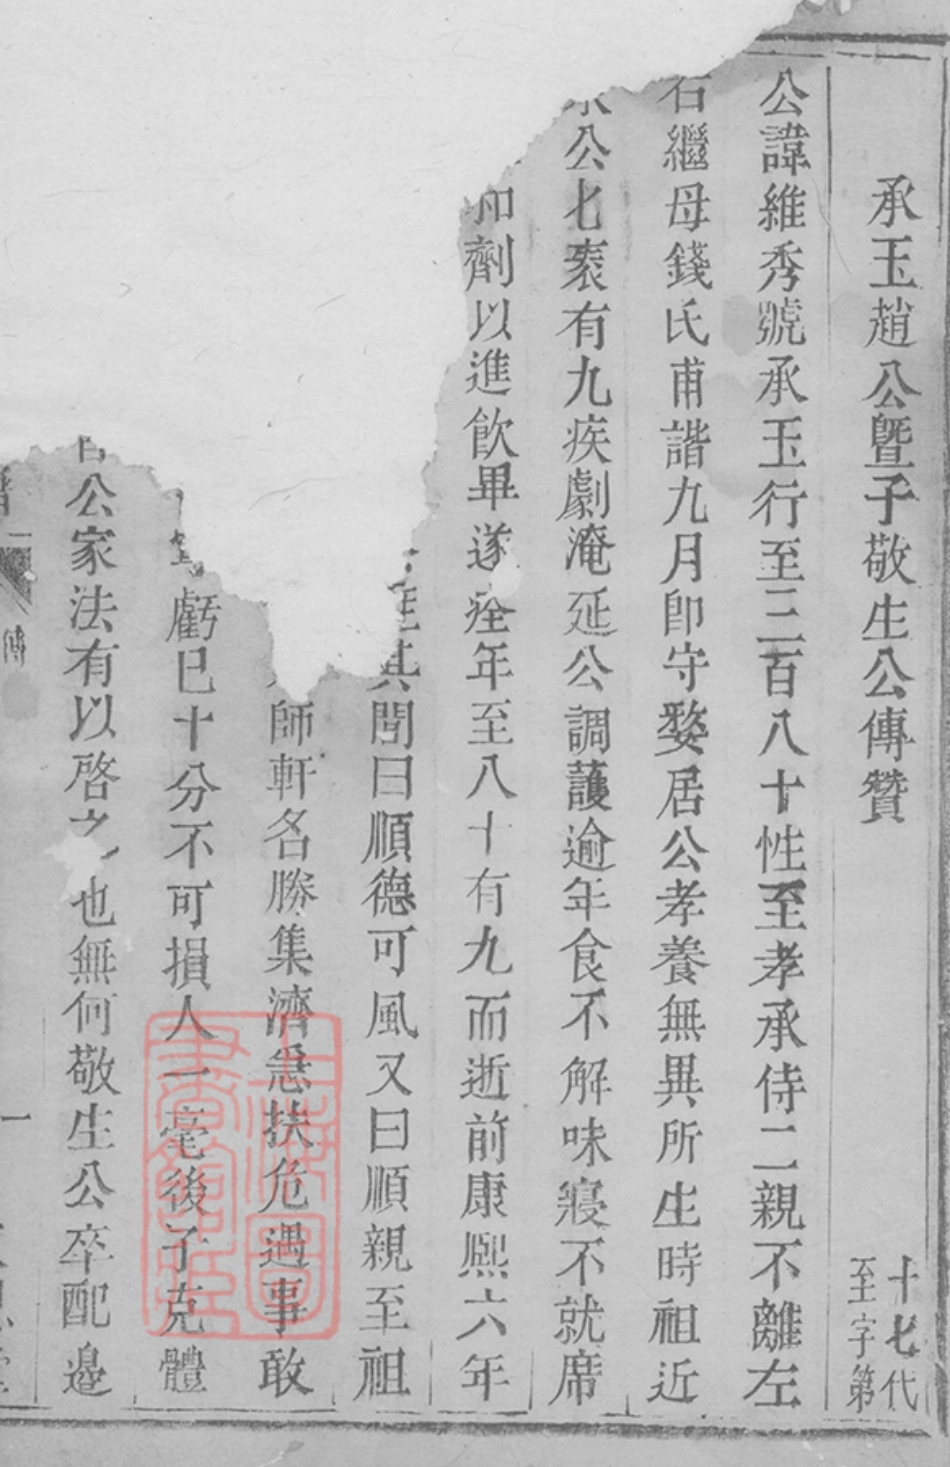 承玉趙公暨子敬生公傳贊
十七代
至字第
公諱維秀號承玉行至三百八十性至孝承侍二親不離左
右繼母錢氏甫諧九月卽守嫠居公孝養無異所生時祖近
公七袠有九疾劇淹延公調護逾年食不解味寢不就席
和劑以進飲畢遂痊年至八十有九而逝前康熙六年
其閭曰順德可風又曰順親至祖
師軒名勝集濟急扶危遇事敢
虧巳十分不可損人一毫後子克體
公家法有以啓之也無何敬生公卒配邉
傳
一
上海圖
書館藏